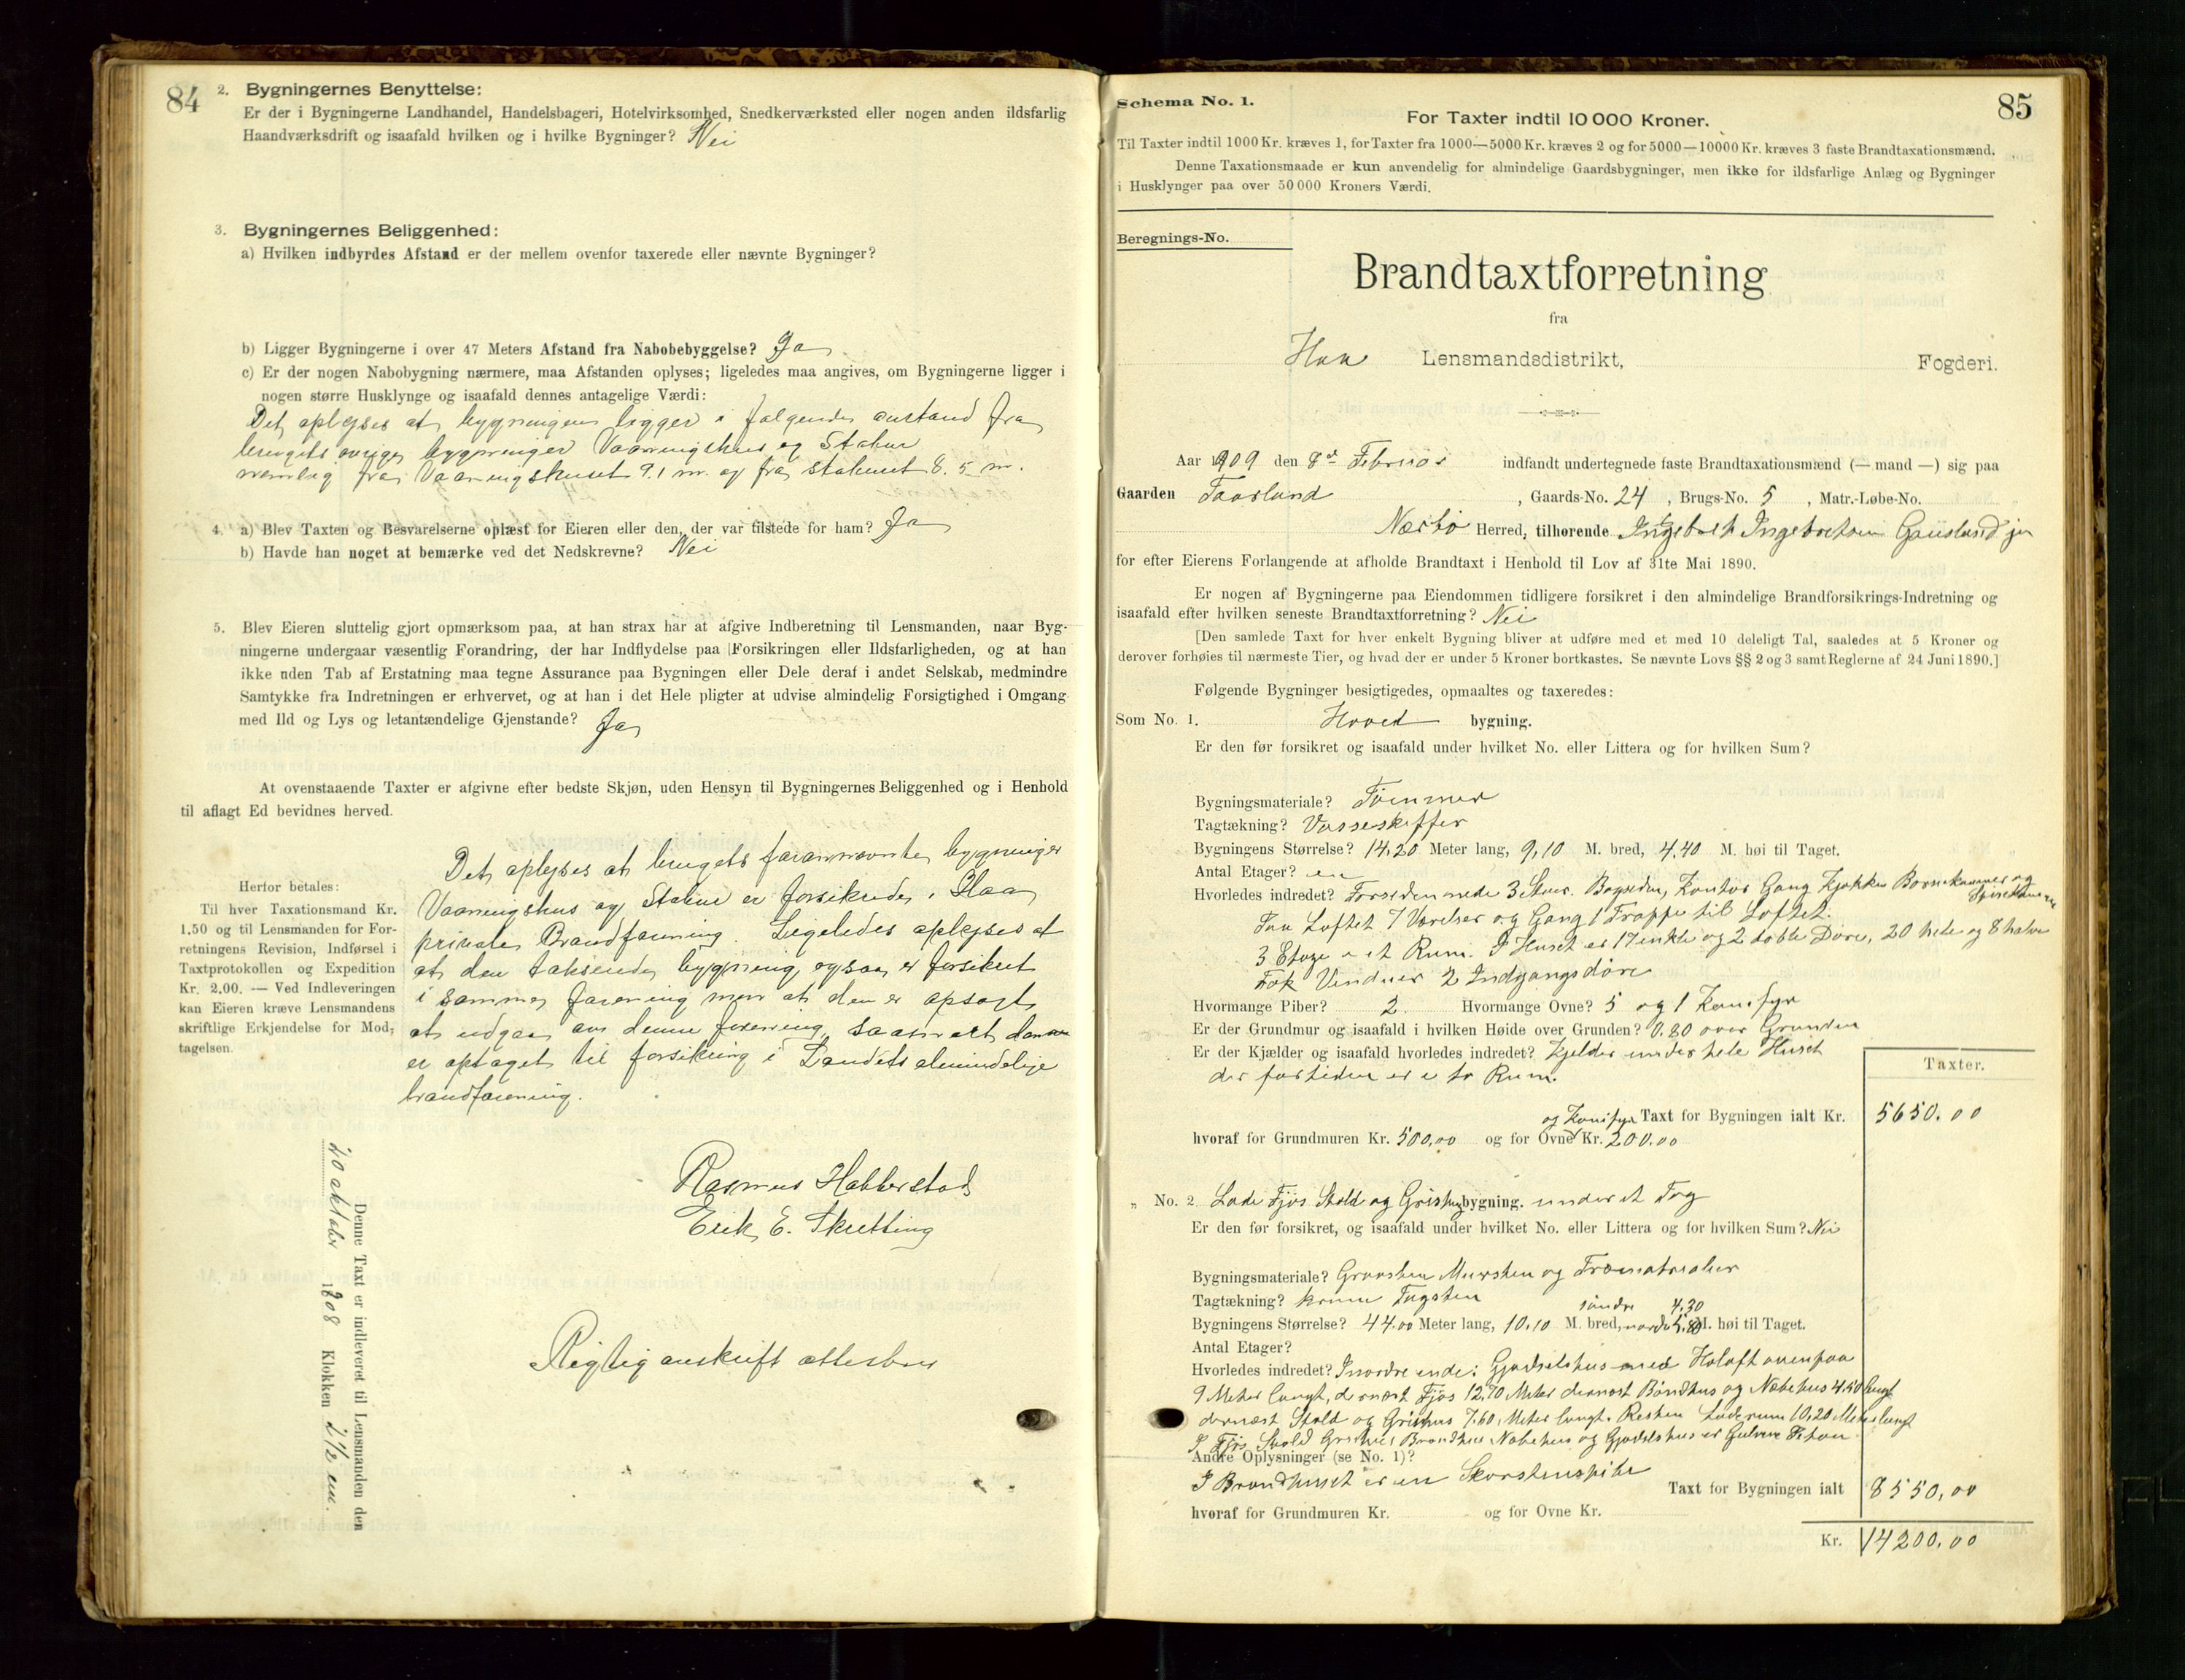 84
2. Bygningernes Benyttelse:
Er der i Bygningerne Landhandel, Handelsbageri, Hotelvirksomhed, Snedkerværksted eller nogen anden ildsfarlig
Haandværksdrift og isaafald hvilken og i hvilke Bygninger? Nei
3. Bygningernes Beliggenhed:
a) Hvilken indbyrdes Afstand er der mellem ovenfor taxerede eller nævnte Bygninger?
b) Ligger Bygningerne i over 47 Meters Afstand fra Nabobebyggelse? Ja
c) Er der nogen Nabobygning nærmere, maa Afstanden oplyses; ligeledes maa angives, om Bygningerne ligger i
nogen større Husklynge og isaafald dennes antagelige Værdi:
Det oplyses at bygningen ligger i følgende avstand fra
brugets øvrige bygninger Vaaningshus og Stabur
nemlig fra Vaaningshuset 9.1 m. og fra staburet 8.5 m.
4. a) Blev Taxten og Besvarelserne oplæst for Eieren eller den, der var tilstede for ham? Ja
b) Havde han noget at bemærke ved det Nedskrevne? Nei
5. Blev Eieren sluttelig gjort opmærksom paa, at han strax har at afgive Indberetning til Lensmanden, naar Byg-
ningerne undergaar væsentlig Forandring, der har Indflydelse paa Forsikringen eller Ildsfarligheden, og at han
ikke uden Tab af Erstatning maa tegne Assurance paa Bygningen eller Dele deraf i andet Selskab, medmindre
Samtykke fra Indretningen er erhvervet, og at han i det Hele pligter at udvise almindelig Forsigtighed i Omgang
med Ild og Lys og letantændelige Gjenstande? Ja
At ovenstaaende Taxter er afgivne efter bedste Skjøn, uden Hensyn til Bygningernes Beliggenhed og i Henhold
til aflagt Ed bevidnes herved.
Det oplyses at brugets forannævnte bygninger
Vaaningshus og Stabur er forsikrede i Haa
private Brandforening. Ligeledes oplyses at
at den takserede bygning ogsaa er forsikret
i samme forening men at den er opsagt
at udgaa av denne forening, saasnart den
er optaget til forsikring i Landets almindelige
brandforening.
Herfor betales:
Til hver Taxationsmand Kr.
1.50 og til Lensmanden for For-
retningens Revision, Indførsel i
Taxtprotokollen og Expedition
Kr. 2.00. — Ved Indleveringen
kan Eieren kræve Lensmandens
skriftlige Erkjendelse for Mod-
tagelsen.
Rasmus Habberstad
Erik E. Skretting
Rigtig avskrift attesteres
Denne Taxt er indleveret til Lensmanden den
20 oktober 1908 Klokken 2 1/2 em.
85
Schema No. 1.
For Taxter indtil 10 000 Kroner.
Til Taxter indtil 1000 Kr. kræves 1, for Taxter fra 1000—5000 Kr. kræves 2 og for 5000—10000 Kr. kræves 3 faste Brandtaxationsmænd.
Denne Taxationsmaade er kun anvendelig for almindelige Gaardsbygninger, men ikke for ildsfarlige Anlæg og Bygninger
i Husklynger paa over 50 000 Kroners Værdi.
Beregnings-No.
Brandtaxtforretning
fra
Haa Lensmandsdistrikt, Fogderi.
Aar 1909 den 8de Februar indfandt undertegnede faste Brandtaxationsmænd (— mand —) sig paa
Gaarden Taarland, Gaards-No. 24, Brugs-No. 5, Matr.-Løbe-No.
Nærbø Herred, tilhørende Ingebret Ingebretsen Gausland jr
for efter Eierens Forlangende at afholde Brandtaxt i Henhold til Lov af 31te Mai 1890.
Er nogen af Bygningerne paa Eiendommen tidligere forsikret i den almindelige Brandforsikrings-Indretning og
isaafald efter hvilken seneste Brandtaxtforretning? Nei
[Den samlede Taxt for hver enkelt Bygning bliver at udføre med et med 10 deleligt Tal, saaledes at 5 Kroner og
derover forhøies til nærmeste Tier, og hvad der er under 5 Kroner bortkastes. Se nævnte Lovs §§ 2 og 3 samt Reglerne af 24 Juni 1890.]
Følgende Bygninger besigtigedes, opmaaltes og taxeredes:
Som No. 1. Hoved bygning.
Er den før forsikret og isaafald under hvilket No. eller Littera og for hvilken Sum?
Bygningsmateriale? Tømmer
Tagtækning? Vosseskiffer
Bygningens Størrelse? 14,20 Meter lang, 9,10 M. bred, 4,40 M. høi til Taget.
Antal Etager? en
Hvorledes indredet? Forsiden nede 3 Stuer. Bagsiden, Kontor Gang Kjøkken Barnekammer og
Spisekammer
Paa Loftet 7 Værelser og Gang 1 Trappe til Loftet.
3 Etage er et Rum. I Huset er 17 enkle og 2 doble Døre, 20 hele og 8 halve
Fak Vinduer 2 Indgangsdøre
Hvormange Piber? 2 Hvormange Ovne? 5 og 1 Komfyr
Er der Grundmur og isaafald i hvilken Høide over Grunden? 0.80 over Grunden
Er der Kjælder og isaafald hvorledes indredet? Kjelder under hele Huset
der fortiden er i to Rum.
Taxter.
og Komfyr Taxt for Bygningen ialt Kr. 5650.00
hvoraf for Grundmuren Kr. 500,00 og for Ovne Kr. 200.00
" No. 2 Lade Fjøs Stald og Grishus bygning. under et Tag
Er den før forsikret, og isaafald under hvilket No. eller Littera og for hvilken Sum? Nei
Bygningsmateriale? Graasten Mursten og Træmaterialier
Tagtækning? krume Tagsten
søndre 4,30
Bygningens Størrelse? 44.00 Meter lang, 10,10 M. bred, nordre 5,80 M. høi til Taget.
Antal Etager?
Hvorledes indredet? I nordre ende: Gjødselshus med Høloft ovenpaa
9 Meter langt, dernæst Fjøs 12,70 Meter dernæst Brandhus og Næbehus 4.50 langt
dernæst Stald og Grishus 7.60, Meter langt. Resten Laderum 10,20 Meter langt
I Fjøs Stald Grishus Brandhus Næbehus og Gjødselshus er Gulvene Beton
Andre Oplysninger (se No. 1)?
I Brandhuset er en Skorstenspibe
Taxt for Bygningen ialt 8550,00
hvoraf for Grundmuren Kr. og for Ovne Kr.
Kr. 14200,00